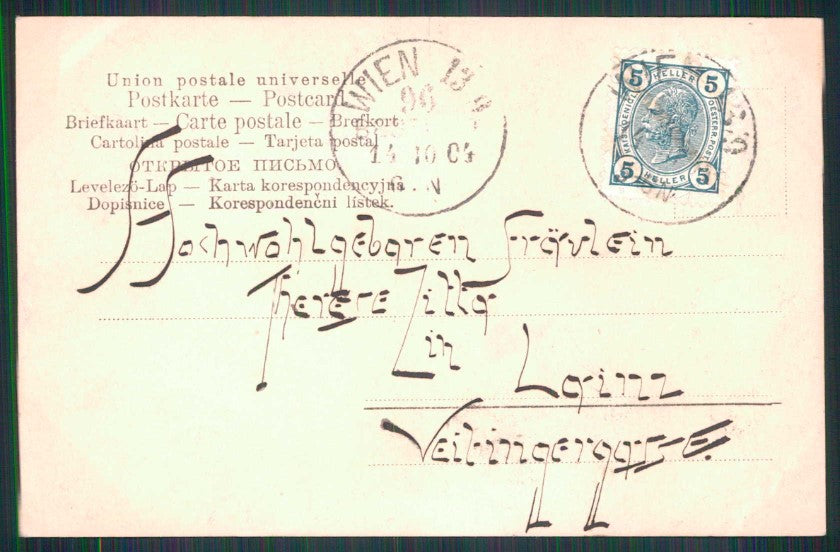 Union postale universelle
Postkarte — Postcard
Briefkaart — Carte postale — Brefkort
Cartolina postale — Tarjeta postal
ОТКРЫТОЕ ПИСЬМО
Levelező-Lap — Karta korespondencyjna
Dopisnice — Korespondenční lístek.
WIEN 13
14 10 04
N
5 HELLER 5
KAIS. KOENIGL. OESTERR. POST
5 HELLER 5
Hochwohlgeboren Fräulein
Therese Zitta
in Lainz
Veitingergasse.